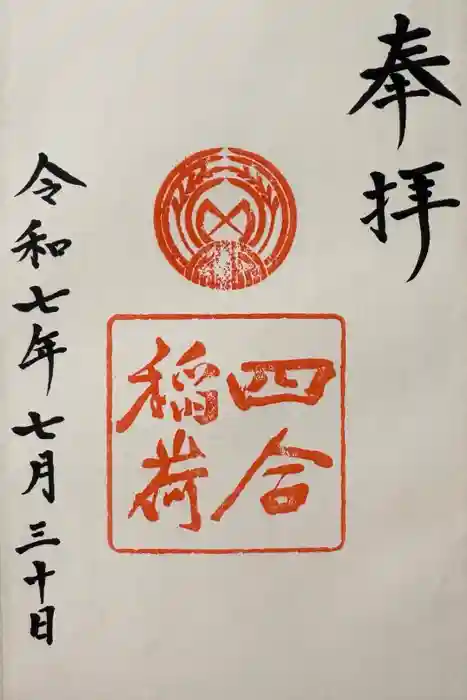 奉拝
四合
稲荷
令和七年七月三十日